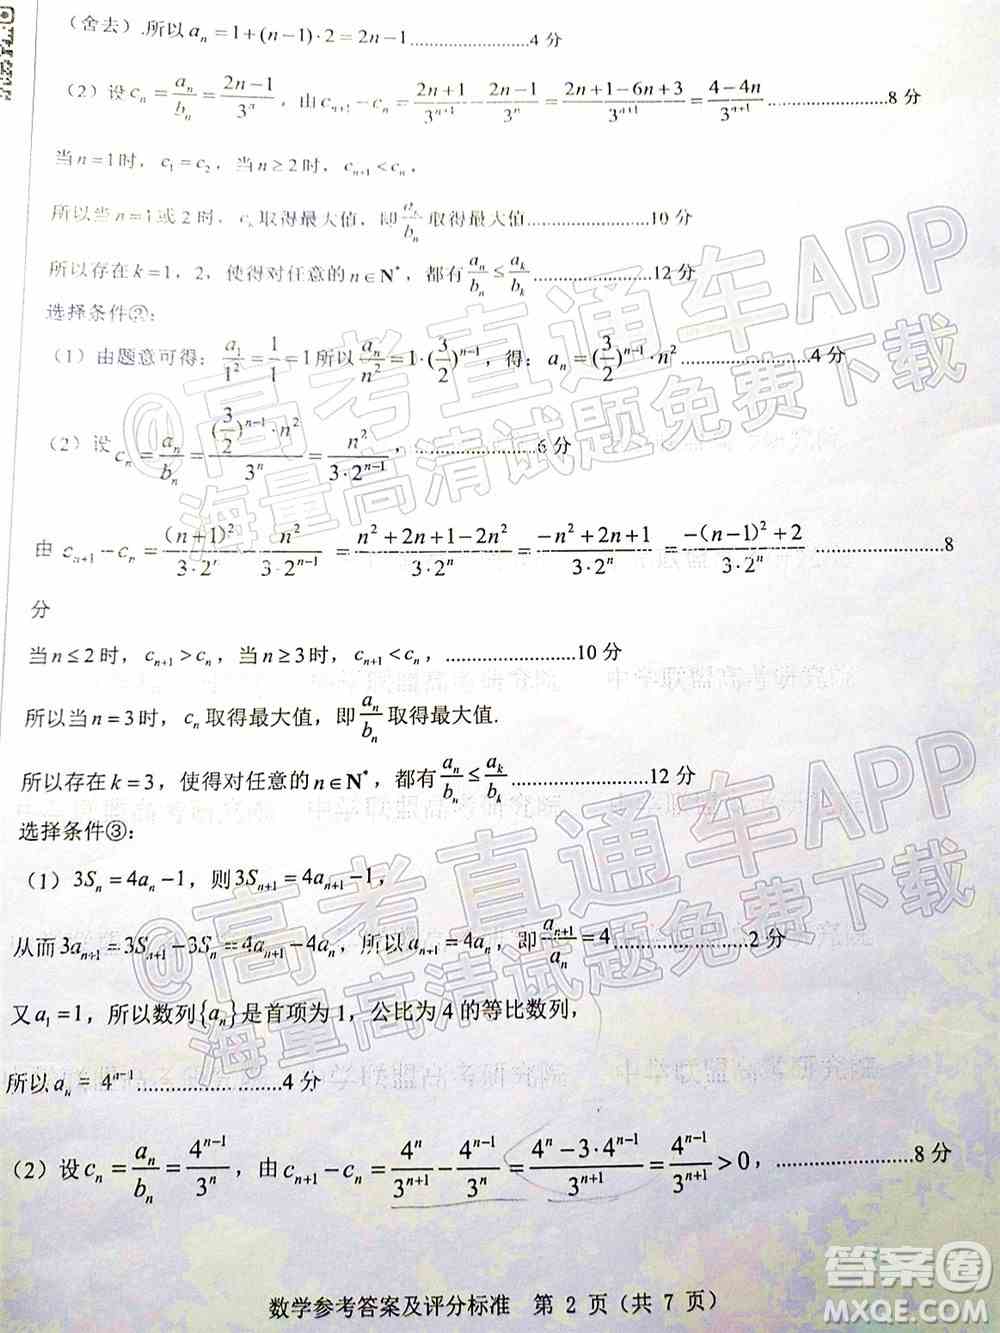 (舍去).所以 aₙ=1+(n−1)·2=2n−1..................4 分
(2) 设 cₙ=aₙ/bₙ=(2n−1)/3ⁿ，由 cₙ₊₁−cₙ=(2n+1)/3ⁿ⁺¹−(2n−1)/3ⁿ=(2n+1−6n+3)/3ⁿ⁺¹=(4−4n)/3ⁿ⁺¹..................8 分
当 n=1 时，c₁=c₂，当 n≥2 时，cₙ₊₁<cₙ，
所以当 n=1 或 2 时，cₙ 取得最大值，即 aₙ/bₙ 取得最大值..................10 分
所以存在 k=1，2，使得对任意的 n∈N*，都有 aₙ/bₙ≤aₖ/bₖ..................12 分
选择条件②：
(1) 由题意可得：a₁/1²=1/1=1 所以 aₙ/n²=1·(3/2)ⁿ⁻¹，得：aₙ=(3/2)ⁿ⁻¹·n²..................4 分
(2) 设 cₙ=aₙ/bₙ=((3/2)ⁿ⁻¹·n²)/3ⁿ=n²/(3·2ⁿ⁻¹)，..................6 分
由 cₙ₊₁−cₙ=(n+1)²/(3·2ⁿ)−n²/(3·2ⁿ⁻¹)=(n²+2n+1−2n²)/(3·2ⁿ)=(−n²+2n+1)/(3·2ⁿ)=(−(n−1)²+2)/(3·2ⁿ)..................8
分
当 n≤2 时，cₙ₊₁>cₙ，当 n≥3 时，cₙ₊₁<cₙ，..................10 分
所以当 n=3 时，cₙ 取得最大值，即 aₙ/bₙ 取得最大值.
所以存在 k=3，使得对任意的 n∈N*，都有 aₙ/bₙ≤aₖ/bₖ..................12 分
选择条件③：
(1) 3Sₙ=4aₙ−1，则 3Sₙ₊₁=4aₙ₊₁−1，
从而 3aₙ₊₁=3Sₙ₊₁−3Sₙ=4aₙ₊₁−4aₙ，所以 aₙ₊₁=4aₙ，即 aₙ₊₁/aₙ=4..................2 分
又 a₁=1，所以数列{aₙ}是首项为 1，公比为 4 的等比数列，
所以 aₙ=4ⁿ⁻¹..................4 分
(2) 设 cₙ=aₙ/bₙ=4ⁿ⁻¹/3ⁿ，由 cₙ₊₁−cₙ=4ⁿ/3ⁿ⁺¹−4ⁿ⁻¹/3ⁿ=(4ⁿ−3·4ⁿ⁻¹)/3ⁿ⁺¹=4ⁿ⁻¹/3ⁿ⁺¹>0，..................8 分
数学参考答案及评分标准 第 2 页（共 7 页）
@高考直通车APP
海量高清试题免费下载
@高考直通车APP
海量高清试题免费下载
中学联盟高考研究院
答案圈
MXQE.COM